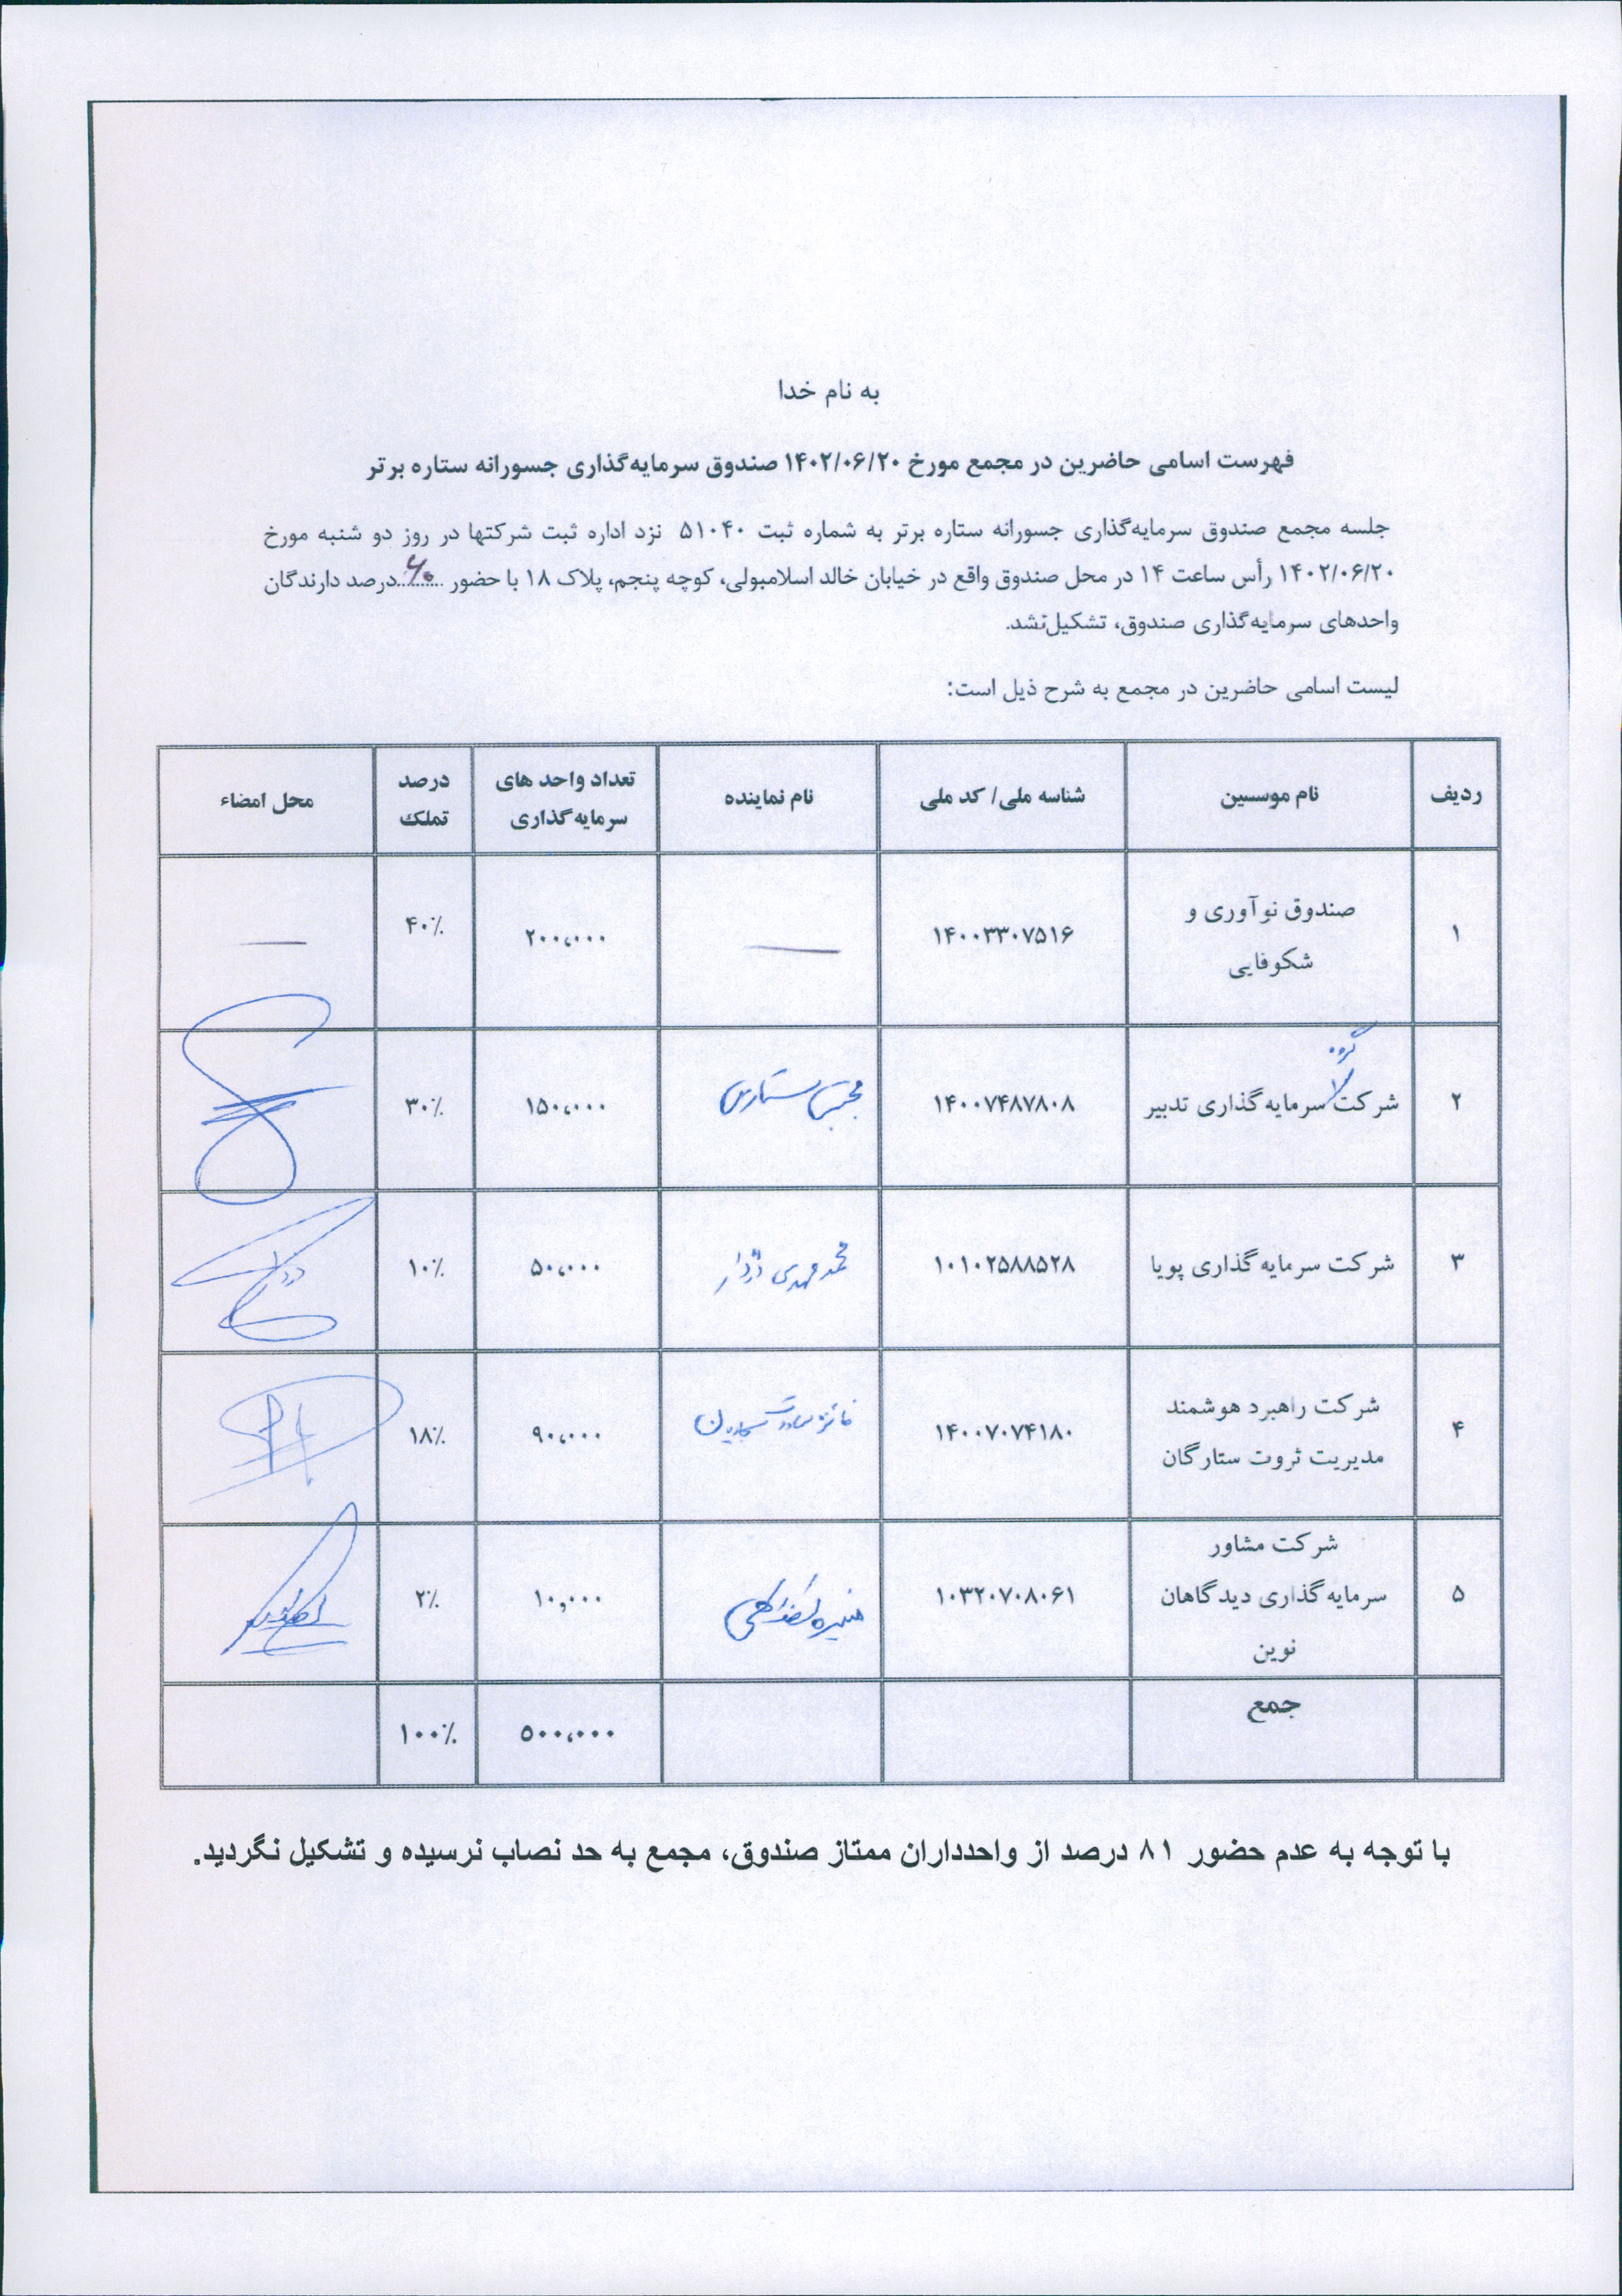 به نام خدا
فهرست اسامی حاضرین در مجمع مورخ ۱۴۰۲/۰۶/۲۰ صندوق سرمایه‌گذاری جسورانه ستاره برتر
جلسه مجمع صندوق سرمایه‌گذاری جسورانه ستاره برتر به شماره ثبت ۵۱۰۴۰ نزد اداره ثبت شرکتها در روز دو شنبه مورخ
۱۴۰۲/۰۶/۲۰ رأس ساعت ۱۴ در محل صندوق واقع در خیابان خالد اسلامبولی، کوچه پنجم، پلاک ۱۸ با حضور ...۶۰...درصد دارندگان
واحدهای سرمایه‌گذاری صندوق، تشکیل‌نشد.
لیست اسامی حاضرین در مجمع به شرح ذیل است:
ردیف نام موسسین شناسه ملی/ کد ملی نام نماینده تعداد واحد های سرمایه‌گذاری درصد تملک محل امضاء
۱ صندوق نوآوری و شکوفایی ۱۴۰۰۳۳۰۷۵۱۶ — ۲۰۰،۰۰۰ ۴۰٪ —
گروه
۲ شرکت سرمایه‌گذاری تدبیر ۱۴۰۰۷۴۸۷۸۰۸ ۱۵۰،۰۰۰ ۳۰٪
۳ شرکت سرمایه‌گذاری پویا ۱۰۱۰۲۵۸۸۵۲۸ محمدمهدی ۵۰،۰۰۰ ۱۰٪
۴ شرکت راهبرد هوشمند مدیریت ثروت ستارگان ۱۴۰۰۷۰۷۴۱۸۰ فائزه سادات ۹۰،۰۰۰ ۱۸٪
۵ شرکت مشاور سرمایه‌گذاری دیدگاهان نوین ۱۰۳۲۰۷۰۸۰۶۱ منیره ۱۰,۰۰۰ ۲٪
جمع ۵۰۰،۰۰۰ ۱۰۰٪
با توجه به عدم حضور ۸۱ درصد از واحدداران ممتاز صندوق، مجمع به حد نصاب نرسیده و تشکیل نگردید.